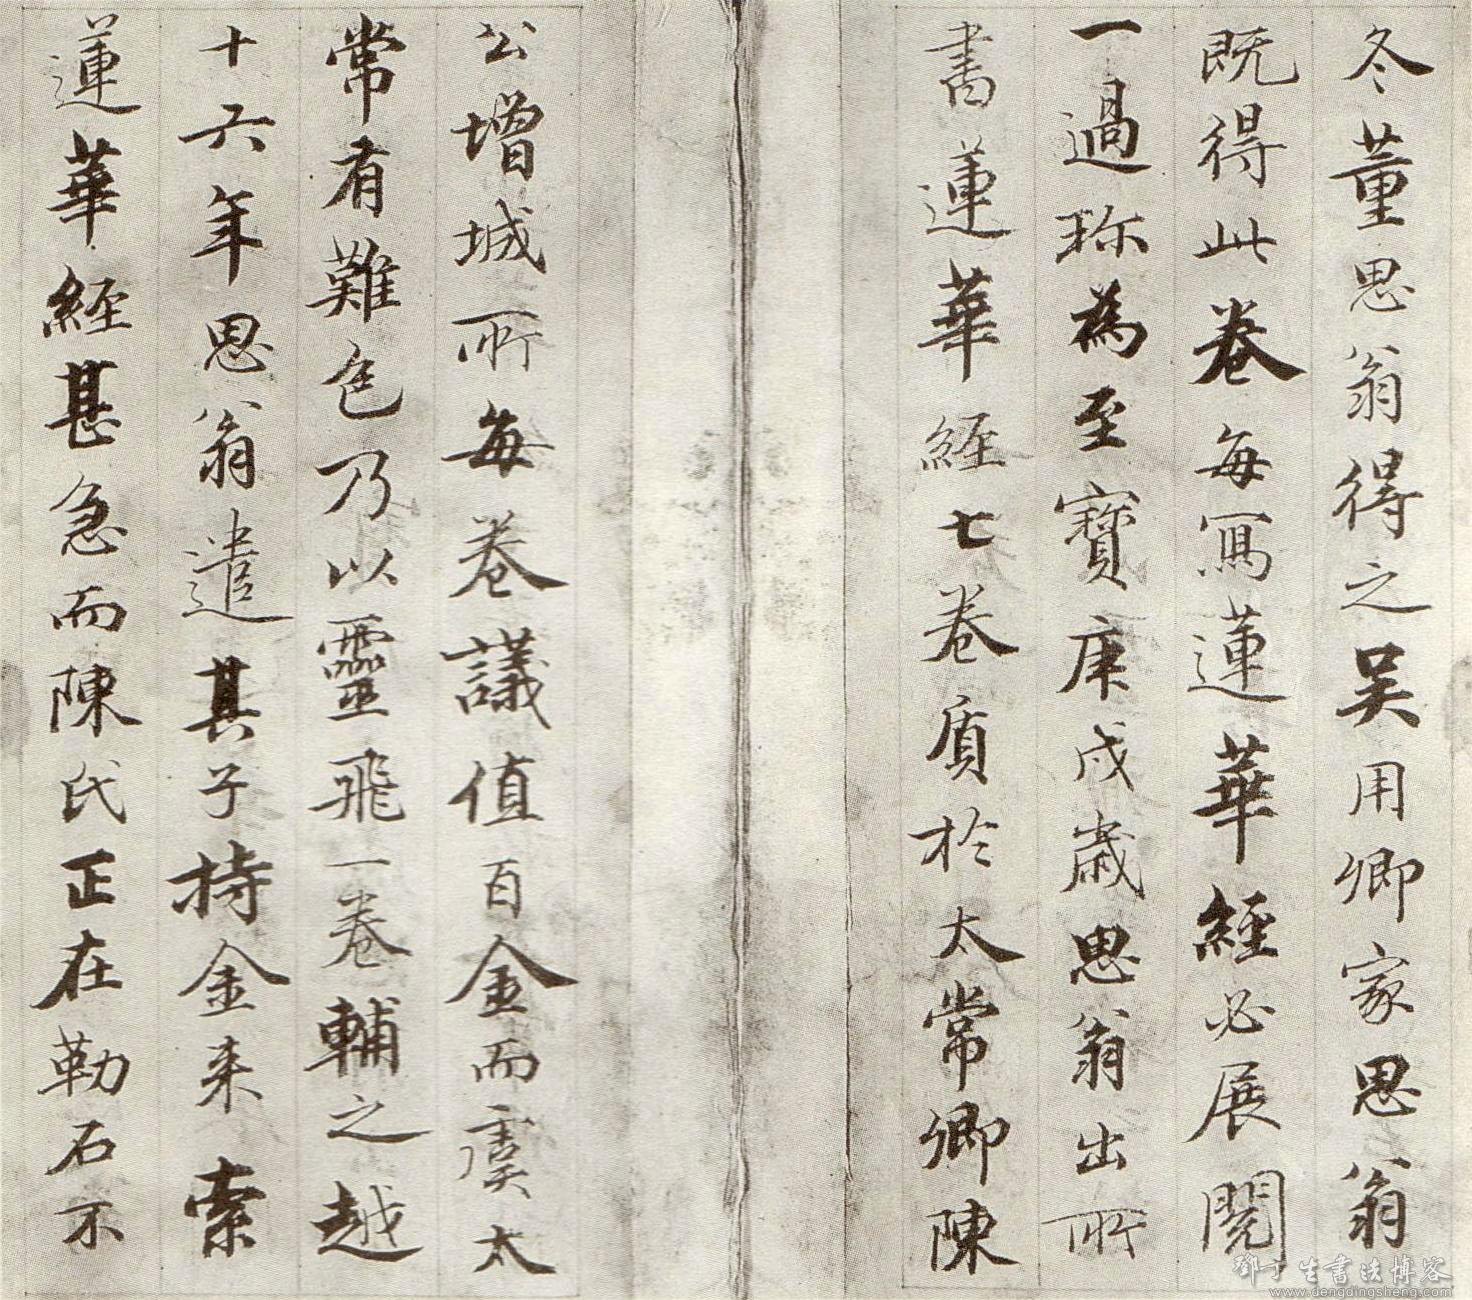 冬董思翁得之吴用卿家思翁
既得此卷每寫蓮華經必展閲
一過珎為至寶庚戌歳思翁出所
書蓮華經七卷質於太常卿陳
公增城所每卷議值百金而虞太
常有難色乃以靈飛一卷輔之越
十六年思翁遣其子持金来索
蓮華經甚急而陳氏正在勒石不
鄧丁生書法博客
www.dengdingsheng.com